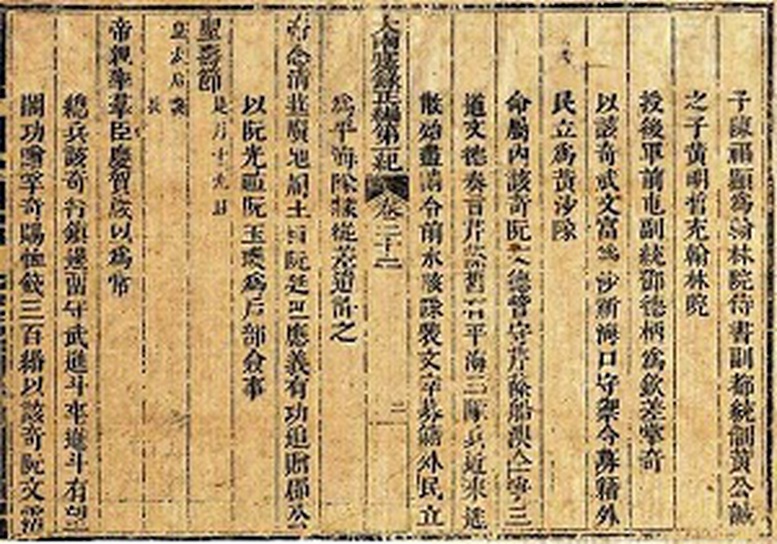 子陳福顯為翰林院侍書副都統制黃公誠
之子黃明哲充翰林院
授後軍前屯副統鄧德柄為欽差掌奇
以該奇武文富為沙新海口守禦令募籍外
民立為黃沙隊
命屬內該奇阮文德管守芹蒢船澳仝寧三
道文德奏言芹蒢舊有平海三隊兵近來逃
散殆盡請令前水該隊裴文募籍外民立
大南寔錄正編第一紀 卷二十二 二
為平海隊隸從該道管之
追念清莊廣地土目阮廷應義有功追贈郡公
以阮光阮玉為戶部僉事
聖壽節 是月十九日
皇太后
帝親率羣臣慶賀歲以為常
總兵該奇行鎮邊留守武進斗卒進斗有望
閣功贈掌奇賜恤錢三百緡以該奇阮文清